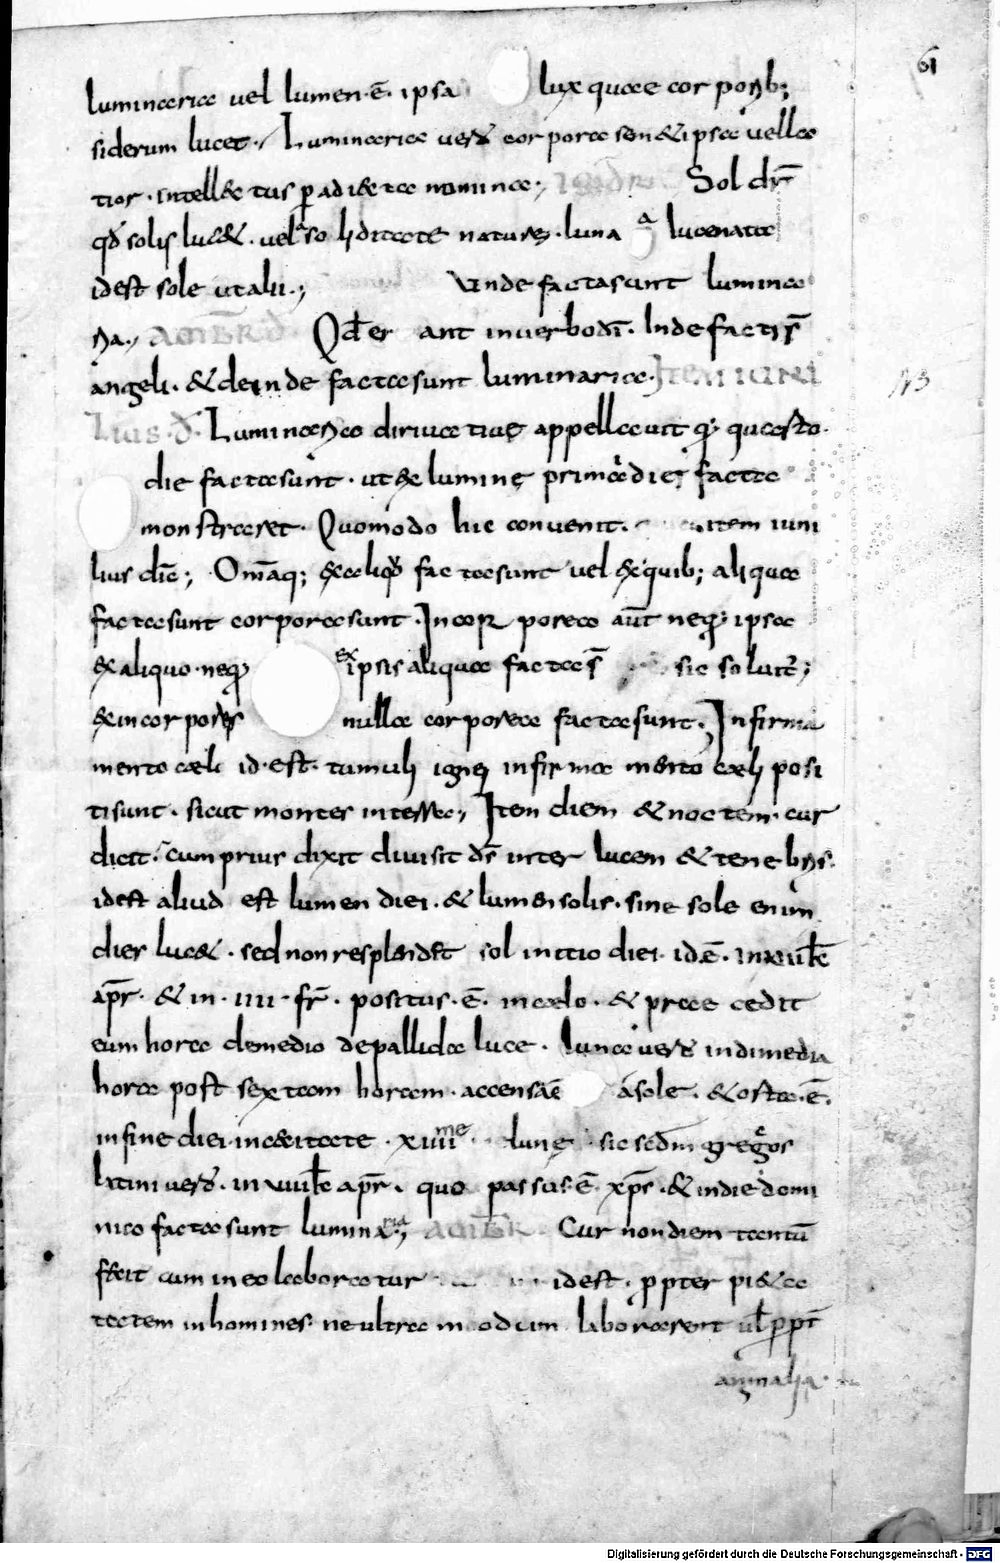 61
luminaria vel lumen·ē· ipsa lux quae corporib;
siderum lucet·, Luminaria verō corpora sen&ipsa vella
tior· intellectus p adiecta nomina; Sol dr̄
qđ solis luc&· vel so liditate naturę· luna a lucenata
idest sole ut alii·; Unde facta sunt lumina
ria·, AGIBR Qđ erant in verbo dī· Inde factis̄
angeli· & deinde facta sunt luminaria· ITEM IUNI
LIUS·D· Luminaria dirivativę appellavit q; quarto·
die facta sunt· ut de lumine primae diei facta
monstraret· Quomodo hic convenit· item iuni
lius dic̄; Omāq; ex aliqđ facta sunt vel ex quib; aliqua
facta sunt corporea sunt· Incor porea aūt neq; ipsa
ex aliquo· neq; ex ipsis aliqua facta s̄ sic solvit̄;
ex incorporeis nulla corporea facta sunt·, In firma
mento caeli id·est· tumuli ignei in firmamento caeli posi
ti sunt· sicut montes in tessec; Item diem & noctem· cur
dicit· cum prius dixit divisit ds̄ inter lucem & tenebras·
idest aliud est lumen diei· & lumen solis· sine sole enim
dies luc&· sed non resplend& sol initio diei· id ē· in xii kł
apr̄· & in· iiii· fr̄· positus·ē· in caelo· & praecedit
eum hora demedio depallida luce· luna verō in dimedia
hora post sextam horam· accensa ē a sole· & osta·ē·
in fine diei· in aetate· xiiii me lunę sic secdm̄ gregos
latini verō· in viii kł apr̄· quo passus·ē xp̄s· & in die domi
nico facta sunt luminaria; AGIBR Cur non diem tantū
fecit cum in eo laboratur idest· propter pieta
tatem in homines· ne ultra modum laborarent vł pp̄t
animalia·
NB
Digitalisierung gefördert durch die Deutsche Forschungsgemeinschaft - DFG